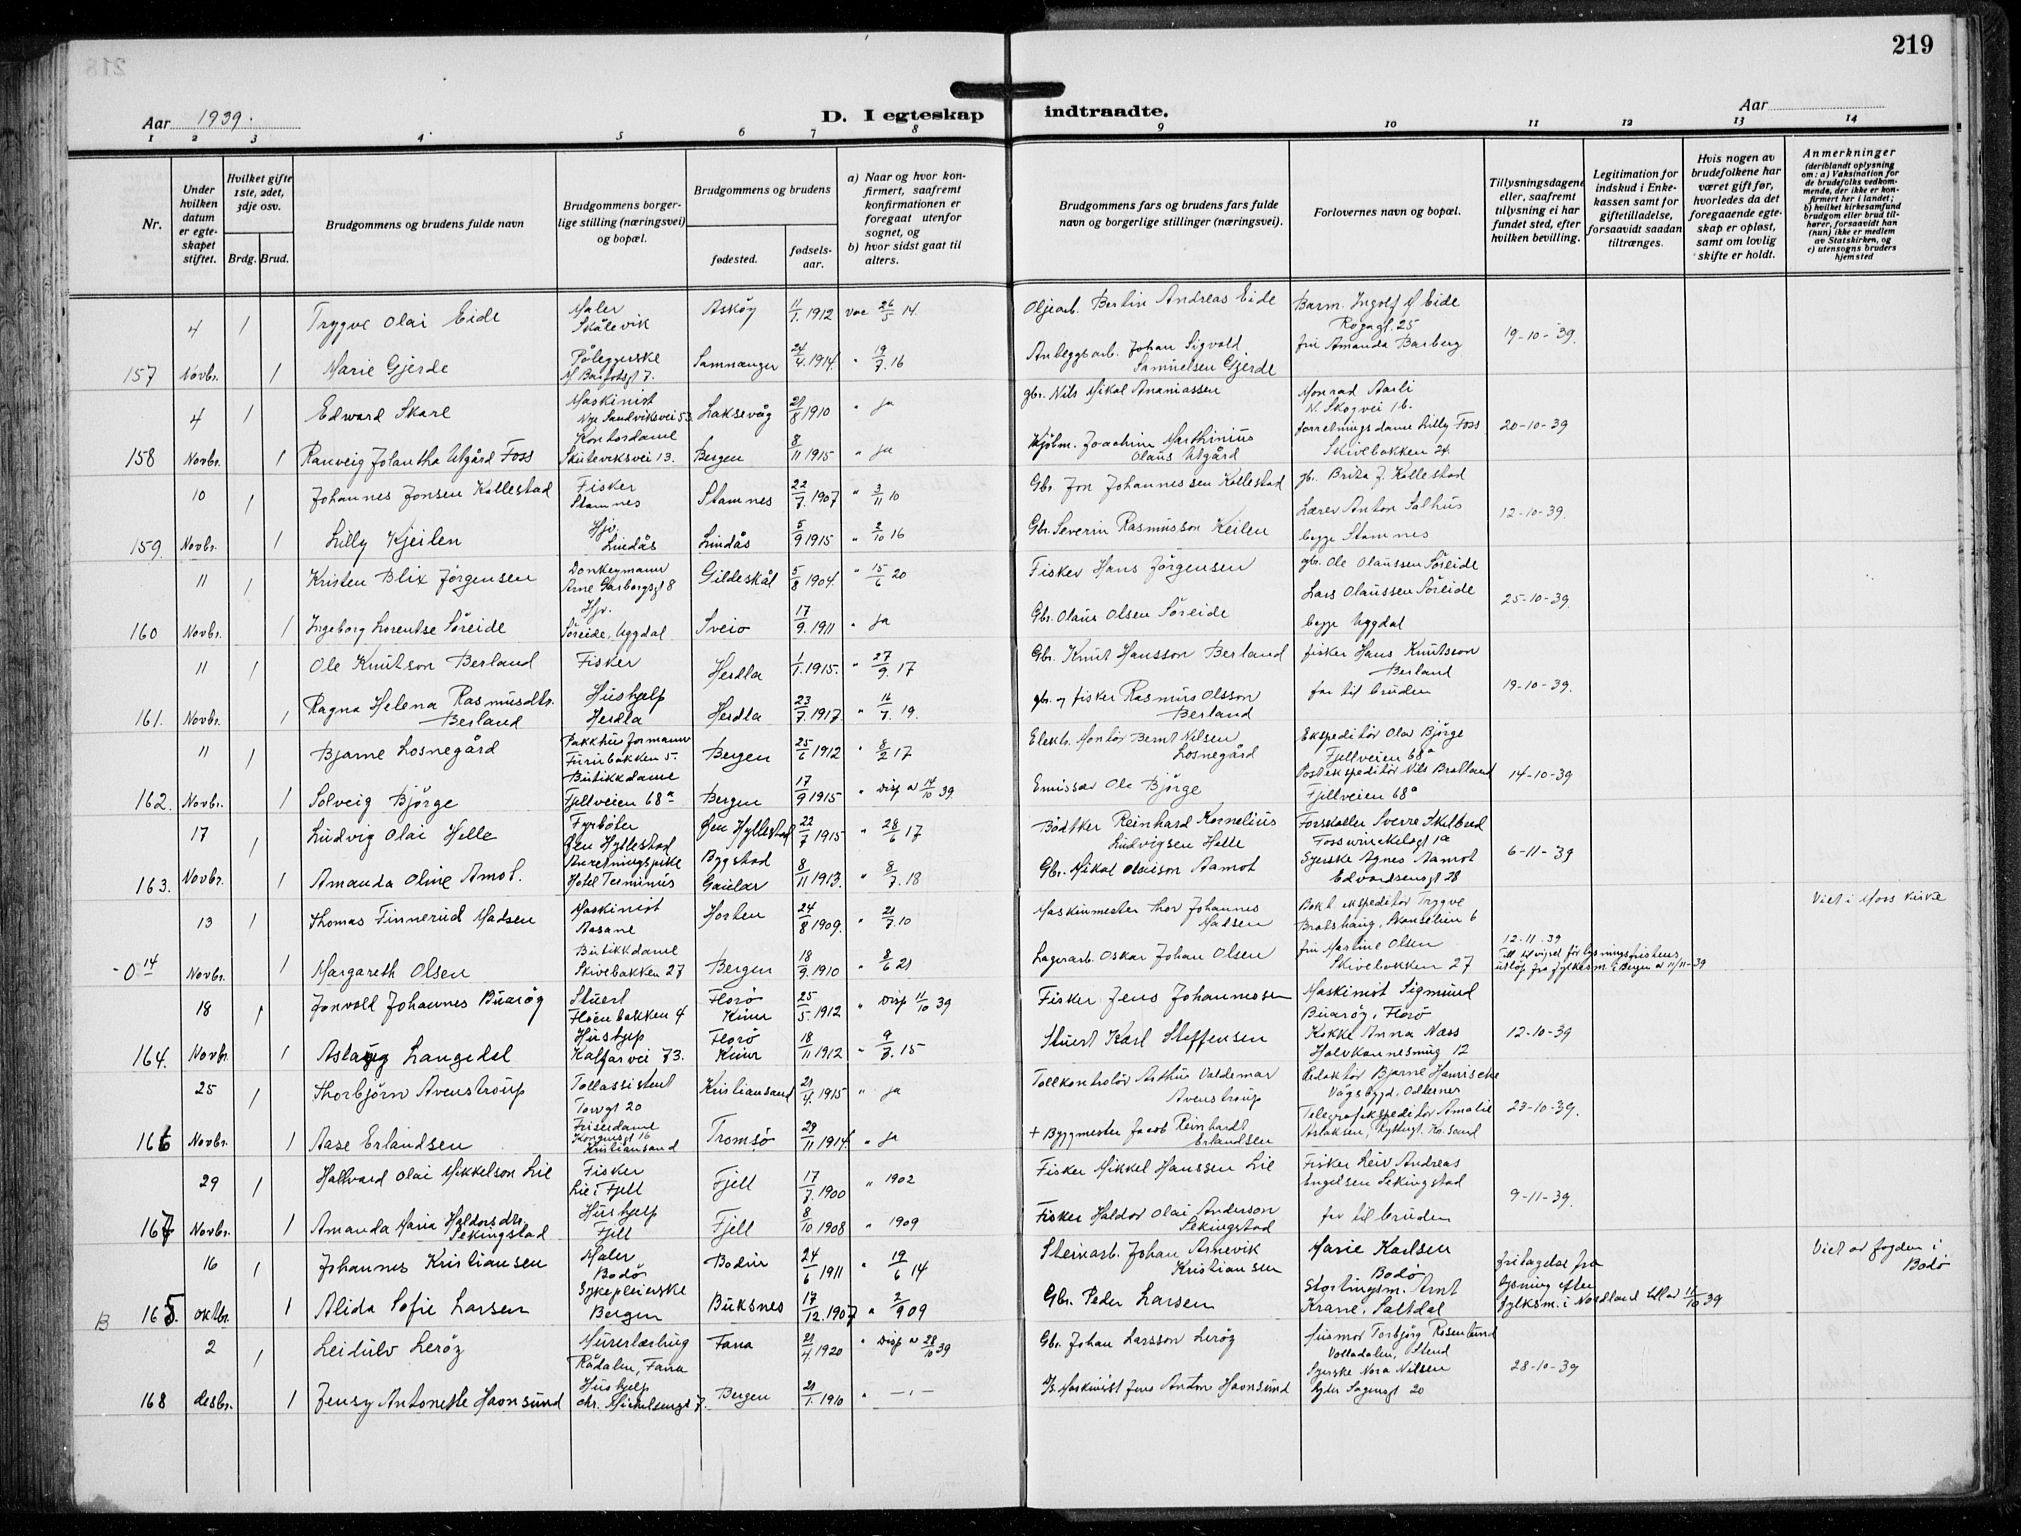 219
Aar 1939.
D. I egteskap indtraadte.
Aar
1 2 3 4 5 6 7 8 9 10 11 12 13 14
Nr.
Under hvilken datum er egteskapet stiftet.
Hvilket gifte 1ste, 2det, 3dje osv.
Brdg. Brud.
Brudgommens og brudens fulde navn
Brudgommens borgerlige stilling (næringsvei) og bopæl.
Brudgommens og brudens
fødested.
fødselsaar.
a) Naar og hvor konfirmert, saafremt konfirmationen er foregaat utenfor sognet, og
b) hvor sidst gaat til alters.
Brudgommens fars og brudens fars fulde navn og borgerlige stillinger (næringsvei).
Forlovernes navn og bopæl.
Tillysningsdagene eller, saafremt tillysning ei har fundet sted, efter hvilken bevilling.
Legitimation for indskud i Enkekassen samt for giftetilladelse, forsaavidt saadan tiltrænges.
Hvis nogen av brudefolkene har været gift før, hvorledes da det foregaaende egteskap er opløst, samt om lovlig skifte er holdt.
Anmerkninger
(deriblandt oplysning om: a) Vaksination for de brudefolks vedkommende, der ikke er konfirmert her i landet; b) hvilket kirkesamfund brudgom eller brud tilhører, forsaavidt han (hun) ikke er medlem av Statskirken, og c) utensogns bruders hjemsted
4 1 Trygve Olai Eide Maler Skålevik Askøy 11/1. 1912 vac 26/5 14. Oljearb. Bertin Andreas Eide Barm. Ingolf M Eide Rogngt. 25
157 Novbr. 1 Marie Gjerde Samnanger 24/4. 1914. " 19/7. 16 Anleggsarb. Johan Sigvald Samuelsen Gjerde fru Amanda Barberg 19-10-39.
4 1 Edward Skare Maskinist Nye Sandviksvei 53. Laksevåg 21/8 1910 " ja gbr. Nils Mikal Ananiassen Monrad Aarli N. Skogvei 1 b.
158 Novbr. 1 Ranveig Jolantha Utgård Foss Kontordame Skuteviksvei 13. Bergen 8/11 1915 " ja Joachim Marthinius Olaus Utgård forretningsdame Lilly Foss Skivebakken 24. 20-10-39
10 1 Johannes Jonsen Kallestad Fisker Stamnes Stamnes 22/7. 1907 " 3/11 10 Gbr. Jon Johannessen Kallestad gb. Brita J. Kallestad
159. Novbr. 1 Lilly Kjeilen Hjv. Lindås Lindås 5/9 1915 " 2/10 16 Gbr. Severin Rasmusson Keilen Lærer Anton Salhus begge Stamnes 12-10-39.
11 1 Kristen Blix Jørgensen Donkeymann Arne Garborgsgt 8 Gildeskål 5/8 1904. " 15/6 20 Fisker Hans Jørgensen gbr. Ole Olaussen Søreide
160 Novbr. 1 Ingeborg Lorentse Søreide Hjv. Søreide, Uggdal Sveio 17/9. 1911 " ja Gbr. Olaus Olsen Søreide Lars Olaussen Søreide begge Uggdal 25-10-39.
11 1 Ole Knutson Berland Fisker Herdla 1/1. 1915. " 27/9. 17 Gbr. Knut Hansson Berland fisker Hans Knutsson Berland
161. Novbr. 1 Ragna Helena Rasmusdtr. Berland Hushjelp Herdla Herdla 23/7. 1917. " 16/7. 19. gbr. og fisker Rasmus Olsson Berland far til bruden 19-10-39.
11 1 Bjarne Losnegård Pakkhusformann Furubakken 5. Bergen 25/6 1912 " 8/2 17 Elektr. Montør Bernt Nilsen Losnegård Ekspeditør Olav Bjørge Fjellveien 68a
162. Novbr. 1 Solveig Bjørge Butikkdame Fjellveien 68a Bergen 17/9 1915 " Disp av 14/10 39. Emissær Ole Bjørge Postekspeditør Nils Bratland Fjellveien 68a 14-10-39
17 1 Ludvig Olai Helle Fyrbøter Øen Hyllestad Øen Hyllestad 22/7 1915 " 28/6 17 Bødtker Reinhard Kornelius Ludvigsen Helle Sverre Skilbred Fosswinckelsgt 1a
163. Novbr. 1 Amanda Oline Amot. Anretningspike Hotel Terminus Bygstad Gaular 8/11 1913. " 8/7. 18 Gbr. Mikal Olaison Aamot Syerske Agnes Aamot Edvardsensgt 28 6-11-39
13 1 Thomas Finnerud Madsen Maskinist Aasane Horten 24/8 1909. " 21/7. 10 Maskinmester Thor Johannes Madsen Trygve Skanselien 6 Viet i Moss kirke
-0 14 Novbr. 1 Margareth Olsen Butikkdame Skivebakken 27 Bergen 18/9. 1910 " 8/6 21 Lagerarb. Oskar Johan Olsen fru Martine Olsen Skivebakken 27 12-11-39
18 1 Jonvold Johannes Buarøy Stuert Fløenbakken 4 Florø Kinn 25/5. 1912 " Disp 11/10 39 Fisker Jens Johannessen Maskinist Sigmund Buarøy, Florø
164. Novbr. 1 Aslaug Langedal Hushjelp Kalfarvei 73. Florø Kinn 18/11 1912 " 9/7. 15 Stuert Karl Steffensen Kokke Anna Næss 12 12-10-39
25 1 Thorbjørn Avenstrup Tollassistent Torvgt 20 Kristiansand 21/4. 1915 " ja Tollkontrolør Arthur Valdemar Avenstrup Redaktør Bjarne Vågsbygd, Oddernes
166 Novbr. 1 Aase Erlandsen Friserdame Kongensgt 16 Kristiansand Tromsø 29/11 1914. " ja + Byggmester Jacob Reinhardt Erlandsen Telegrafekspeditør Amalie Aslaksen, Kr.sand 23-10-39.
29 1 Hallvard Olai Mikkelson Lie Fisker Lie i Fjell Fjell 17/7. 1900 " 1902 Fisker Mikkel Hanssen Lie Fisker Leiv Andreas Engelsen Sekingstad
167 Novbr. 1 Amanda Maria Haldorsdtr. Sekingstad Hushjelp Fjell Fjell 8/10 1908 " 1909 Fisker Haldor Olai Anderson Sekingstad far til bruden 9-11-39.
16 1 Johannes Kristiansen Maler Bodø Bodin 24/6 1911 " 19/6 14 Steinarb. Johan Arnevik Kristiansen Marie Karlsen Bodø fritagelse fra lysning efter Viet av fogden i Bodø
B 165. oktbr. 1 Alida Sofie Larsen Sykepleierske Bergen Buksnes 17/12. 1907 " 2/9 09 Gbr. Peder Larsen Stortingsm. Arnt Krane, Saltdal fylksm. i Nordland till av 11/10 39
2 1 Leidulv Lerøy Murerlærling Rådalen, Fana Fana 21/4. 1920 " Disp av 28/10 39 Gbr. Johan Larsson Lerøy husmor Torbjørg Rosenlund Stend
168 desbr. 1 Jensy Antonette Haonsund Hushjelp Chr. Michelsensgt 7. Bergen 21/1. 1910 " -"- Maskinist Jens Anton Haonsund Syerske Nora Nilsen Lyder Sagensgt 20 28-10-39